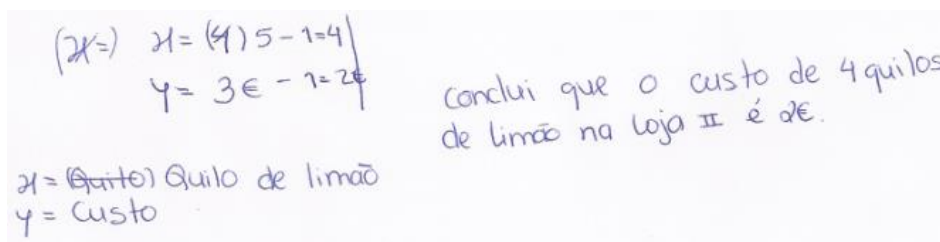 (x=) x = (4) 5 - 1 = 4
y = 3€ - 1 = 2€
conclui que o custo de 4 quilos
de limão na loja II é 2€.
x = (Quito) Quilo de limão
y = Custo